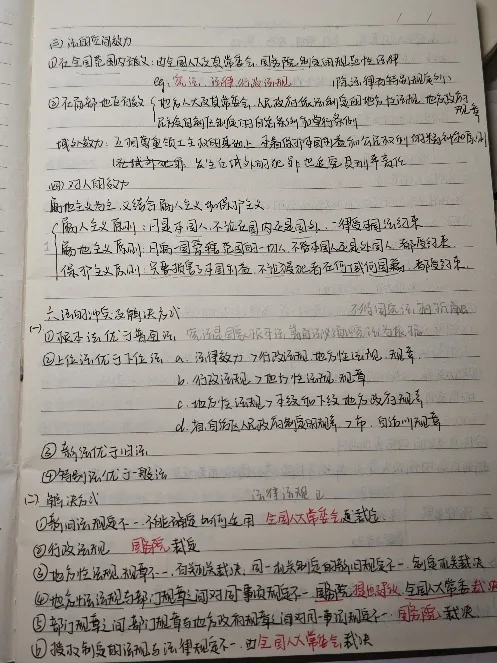 (三)法的空间效力
①在全国范围内有效:由全国人大及其常委会、国务院制定的规范性法律
eg: 宪法、法律、行政法规 (除法律有特别规定外)
②在局部地区有效 地方人大及其常委会、人民政府依法制定的地方性法规、地方政府规章
民族自治制定的自治条例和单行条例
域外效力:互相尊重领土主权的基础上,
发生在域外的犯罪也追究其刑事责任
(四)对人的效力
属地主义为主,又结合属人主义和保护主义
属人主义原则:只是本国人,不论在国内还是国外,一律受本国法约束
属地主义原则:只要一国管辖范围的一切人,不管本国人还是外国人,都受约束
保护主义原则:只要损害了本国利益,不论侵犯者在何地何国籍,都受约束.
六、法的冲突及解决方式
(一) ①根本法优于普通法
②上位法优于下位法 a. 法律效力>行政法规、地方性法规、规章
b. 行政法规>地方性法规、规章
c. 地方性法规>本级和下级地方政府规章
d. 省自治区人民政府制定的规章>市、自治州规章
③新法优于旧法
④特别法优于一般法
(二)解决方式
①新旧法规定不一,不能确定如何适用 全国人大常委会裁定
②行政法规 国务院裁定
③地方性法规、规章不一,有关机关裁决,同一机关制定的新旧规定不一,制定机关裁决
④地方性法规与部门规章之间对同一事项规定不一,国务院提出意见,全国人大常委裁决
⑤部门规章之间、部门规章与地方政府规章之间对同一事项规定不一,国务院裁决
⑥授权制定的法规与法律规定不一,由全国人大常委会裁决